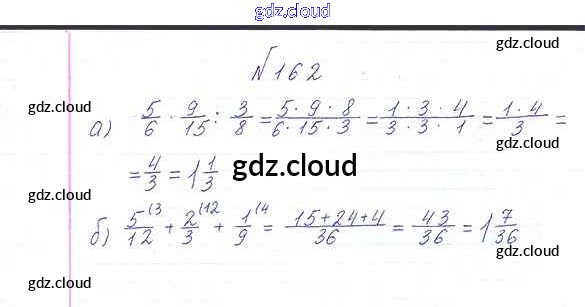 gdz.cloud
gdz.cloud
№ 162
gdz.cloud gdz.cloud
а) 5/6 · 9/15 : 3/8 = 5·9·8/6·15·3 = 1·3·4/3·3·1 = 1·4/3 =
= 4/3 = 1 1/3
gdz.cloud gdz.cloud gdz.cloud
б) 5/12 (3 + 2/3 (12 + 1/9 (4 = 15+24+4/36 = 43/36 = 1 7/36
gdz.cloud gdz.cloud